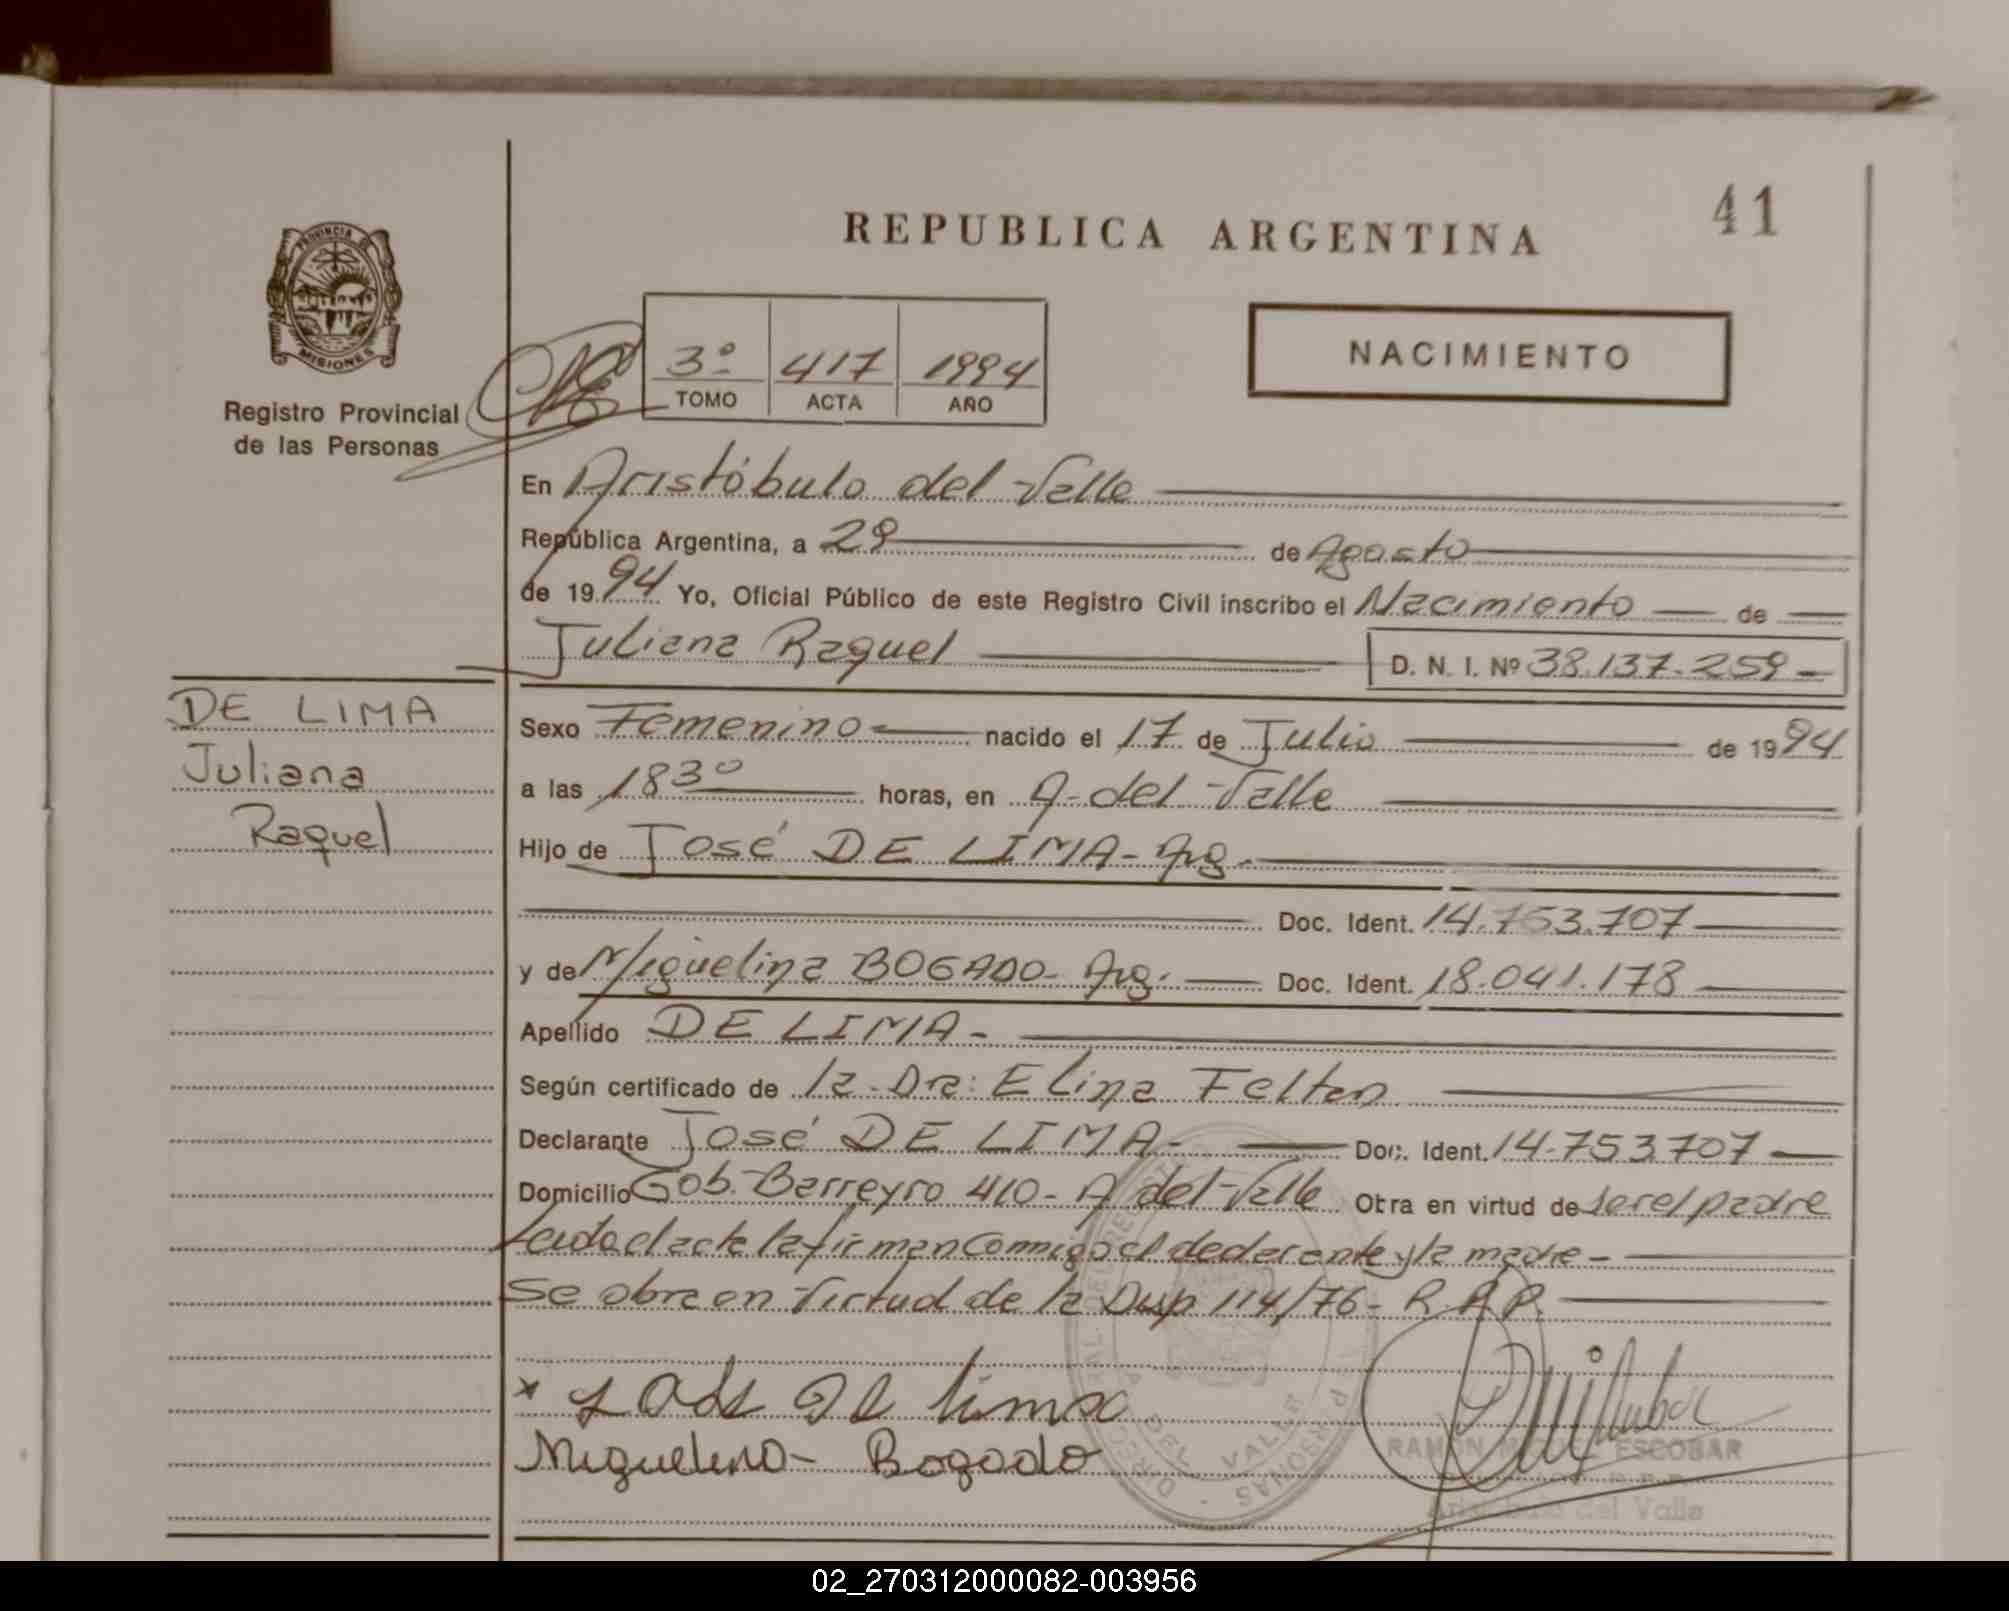 41
REPUBLICA ARGENTINA
PROVINCIA DE
MISIONES
Registro Provincial
de las Personas
3º 417 1994
TOMO ACTA AÑO
NACIMIENTO
En Aristóbulo del Valle
República Argentina, a 29 de Agosto
de 1994 Yo, Oficial Público de este Registro Civil inscribo el Nacimiento de
Juliana Raquel D. N. I. Nº 38.137.259-
DE LIMA
Juliana
Raquel
Sexo Femenino nacido el 17 de Julio de 1994
a las 18³⁰ horas, en A. del Valle
Hijo de José DE LIMA- Arg.
Doc. Ident. 14.753.707
y de Miguelina BOGADO- Arg. Doc. Ident. 18.041.178
Apellido DE LIMA-
Según certificado de la Dra: Elina Felten
Declarante José DE LIMA- Doc. Ident. 14.753.707
Domicilio Gob. Barreyro 410- A del Valle Obra en virtud de ser el padre
Leida el acta la firman Conmigo el declarante y la madre-
Se obra en Virtud de la Disp 114/76- R.P.P.
x Jose de lima
Miguelina- Bogado
RAMÓN MIGUEL ESCOBAR
Aristóbulo del Valle
02_270312000082-003956